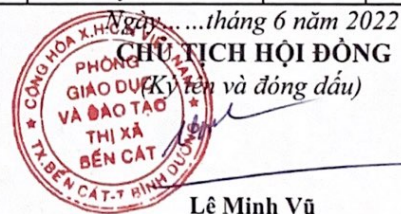 Ngày......tháng 6 năm 2022
CHỦ TỊCH HỘI ĐỒNG
(Ký tên và đóng dấu)
CỘNG HÒA X.H.C.N VIỆT NAM
PHÒNG
GIÁO DỤC
VÀ ĐÀO TẠO
THỊ XÃ
BẾN CÁT
TX.BẾN CÁT-T BÌNH DƯƠNG
Lê Minh Vũ